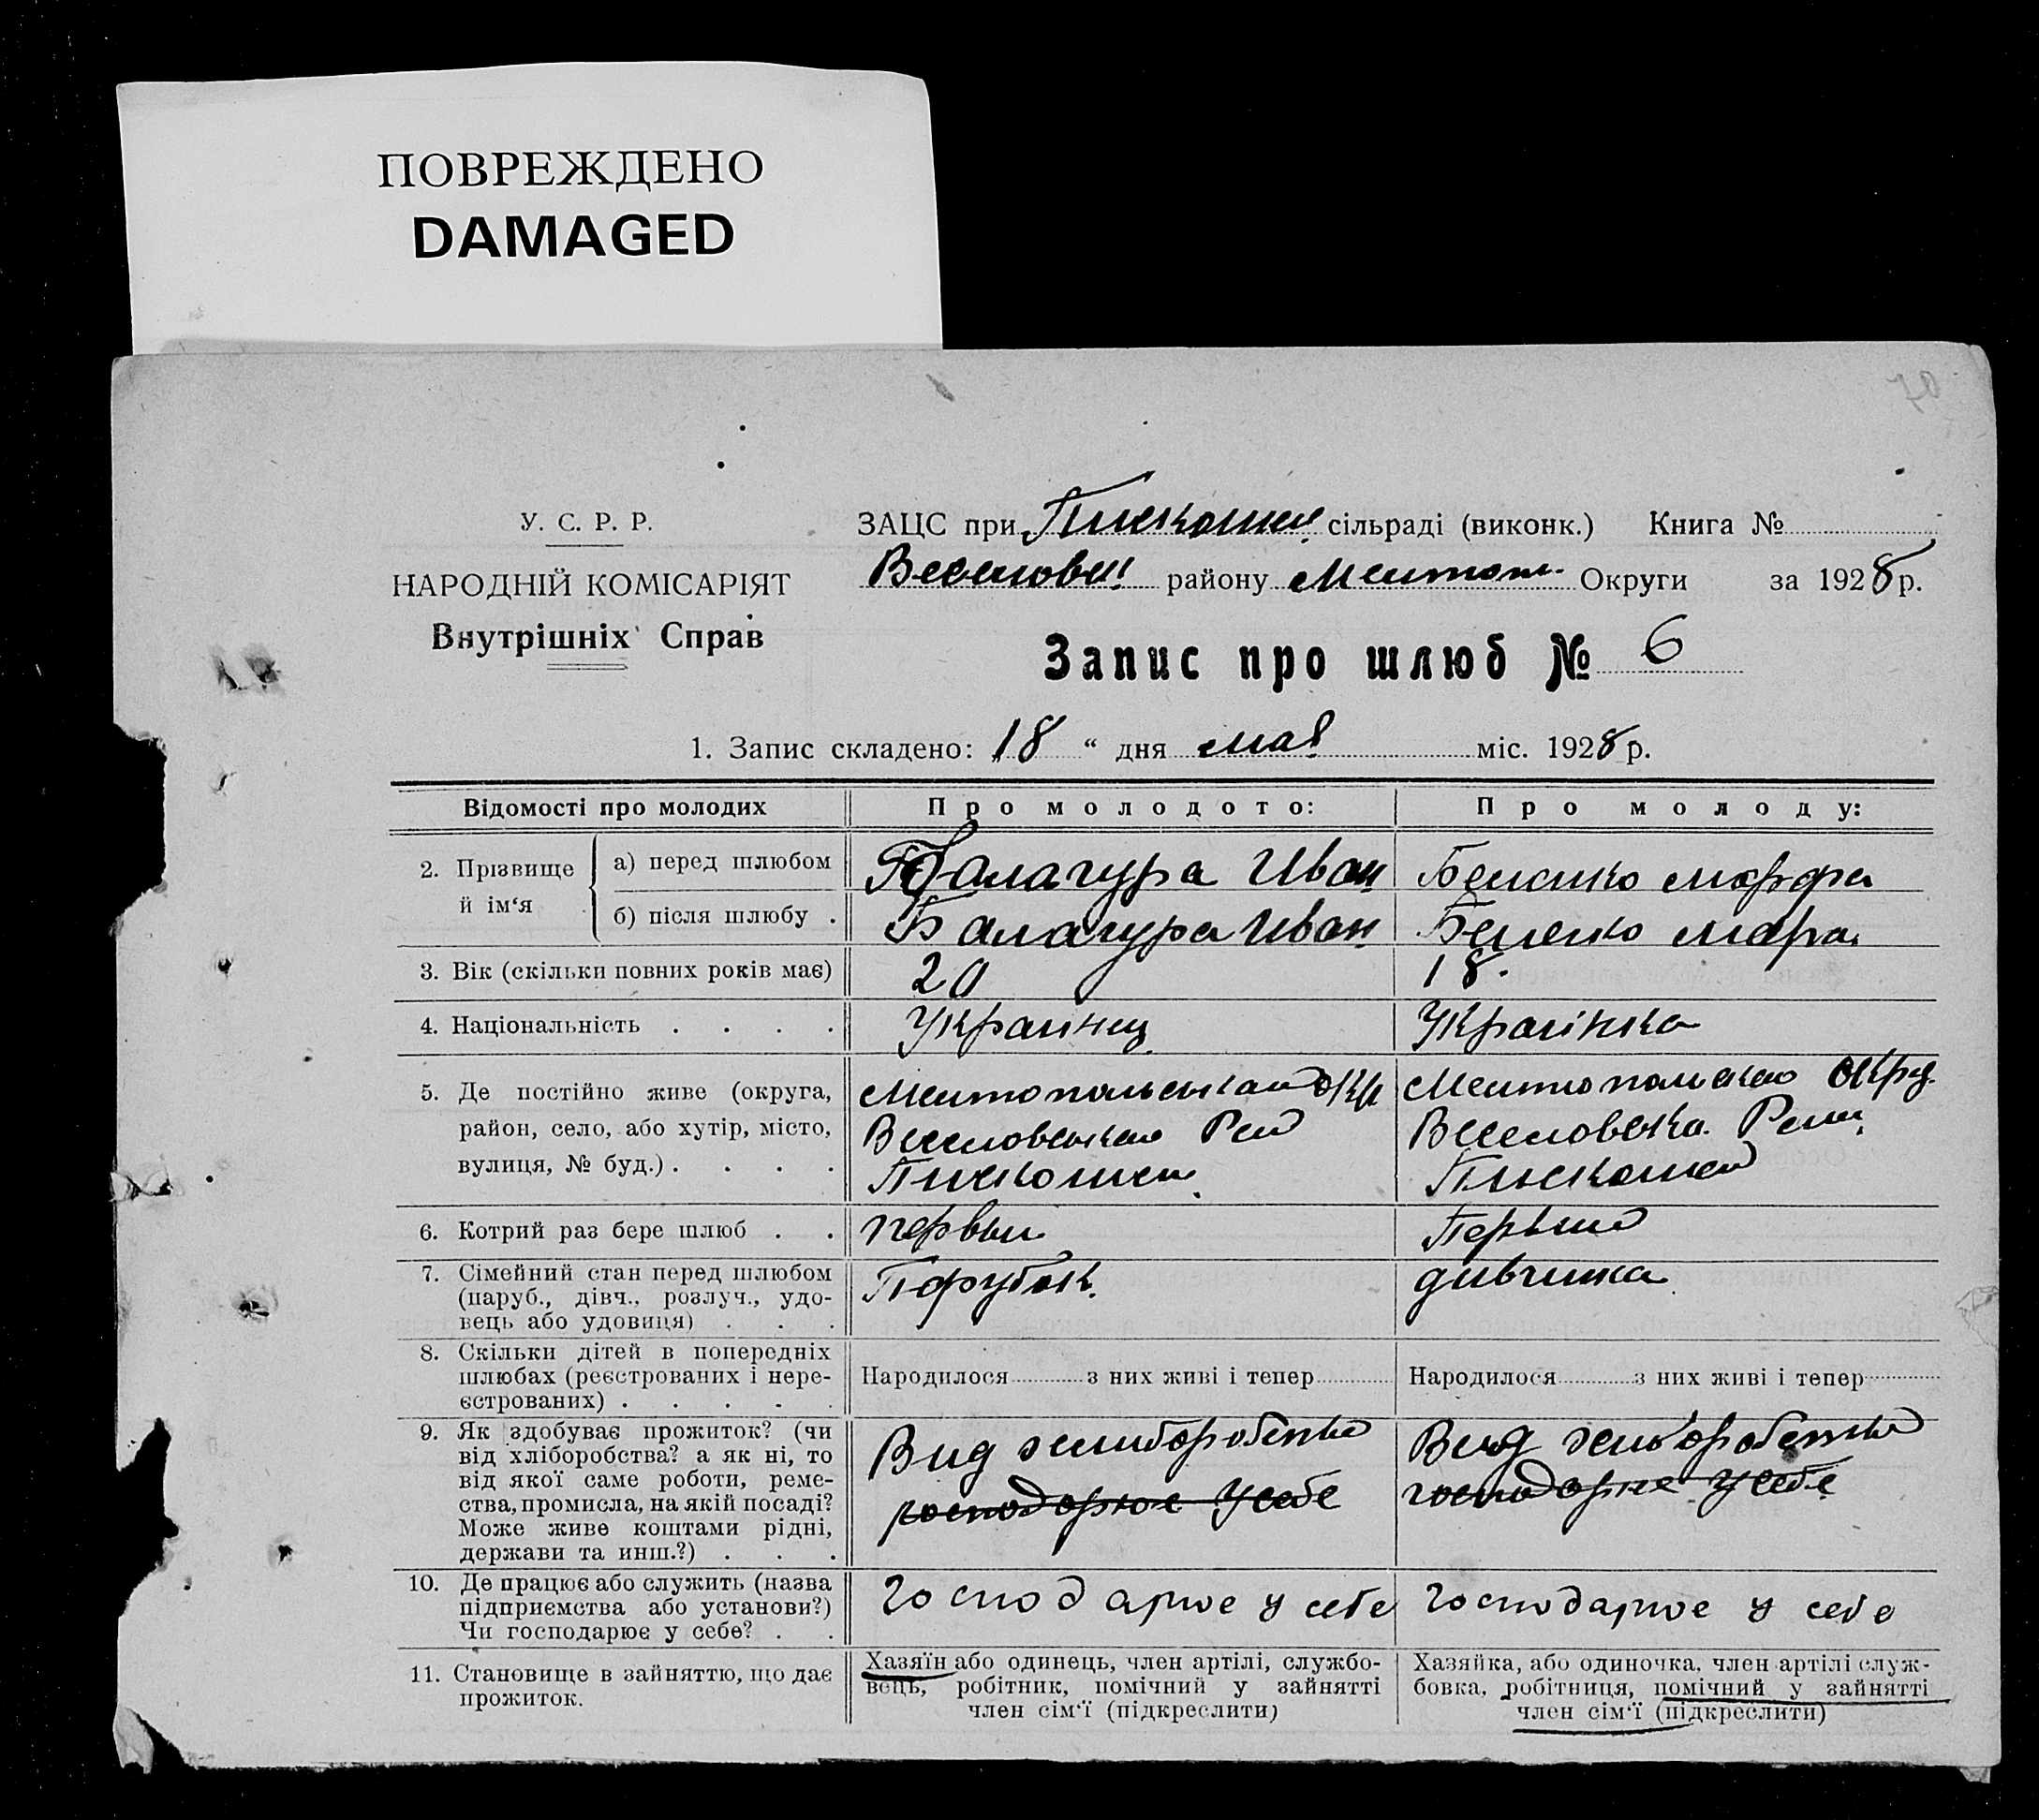 ПОВРЕЖДЕНО
DAMAGED
70
У. С. Р. Р.
НАРОДНІЙ КОМІСАРІЯТ
Внутрішніх Справ
ЗАЦС при Пискошин. сільраді (виконк.) Книга №
Веселовськ району Мелітоп. Округи за 1928 р.
Запис про шлюб № 6
1. Запис складено: „18 “ дня мая міс. 1928 р.
Відомості про молодих
Про молодого:
Про молоду:
2. Прізвище й ім‘я
а) перед шлюбом
Балагура Иван
Беленко Марфа
б) після шлюбу .
Балагура Иван
Беленко Марфа
3. Вік (скільки повних років має)
20
18.
4. Національність . . . .
Украинец
Украінка
5. Де постійно живе (округа,
район, село, або хутір, місто,
вулиця, № буд.) . . . .
Мелитопольськой Окр
Веселовськой Рай
Пискошин
Мелитопольской Окру.
Веселовска. Рай.
Пискошин
6. Котрий раз бере шлюб . .
первый
Первый
7. Сімейний стан перед шлюбом
(паруб., дівч., розлуч., удо-
вець або удовиця) . . .
Парубок.
дивчинка
8. Скільки дітей в попередніх
шлюбах (реєстрованих і нере-
єстрованих) . . . . .
Народилося з них живі і тепер
Народилося з них живі і тепер
9. Як здобуває прожиток? (чи
від хліборобства? а як ні, то
від якої саме роботи, реме-
ства, промисла, на якій посаді?
Може живе коштами рідні,
держави та инш.?) . . .
Вид хлиборобства
господарюе у себе
Вид хлиборобства
господарюе у себе
10. Де працює або служить (назва
підприємства або установи?)
Чи господарює у себе? . .
господарюе у себе
господарюе у себе
11. Становище в зайняттю, що дає
прожиток.
Хазяїн або одинець, член артілі, службо-
вець, робітник, помічний у зайнятті
член сім‘ї (підкреслити)
Хазяйка, або одиночка, член артілі служ-
бовка, робітниця, помічний у зайнятті
член сім‘ї (підкреслити)